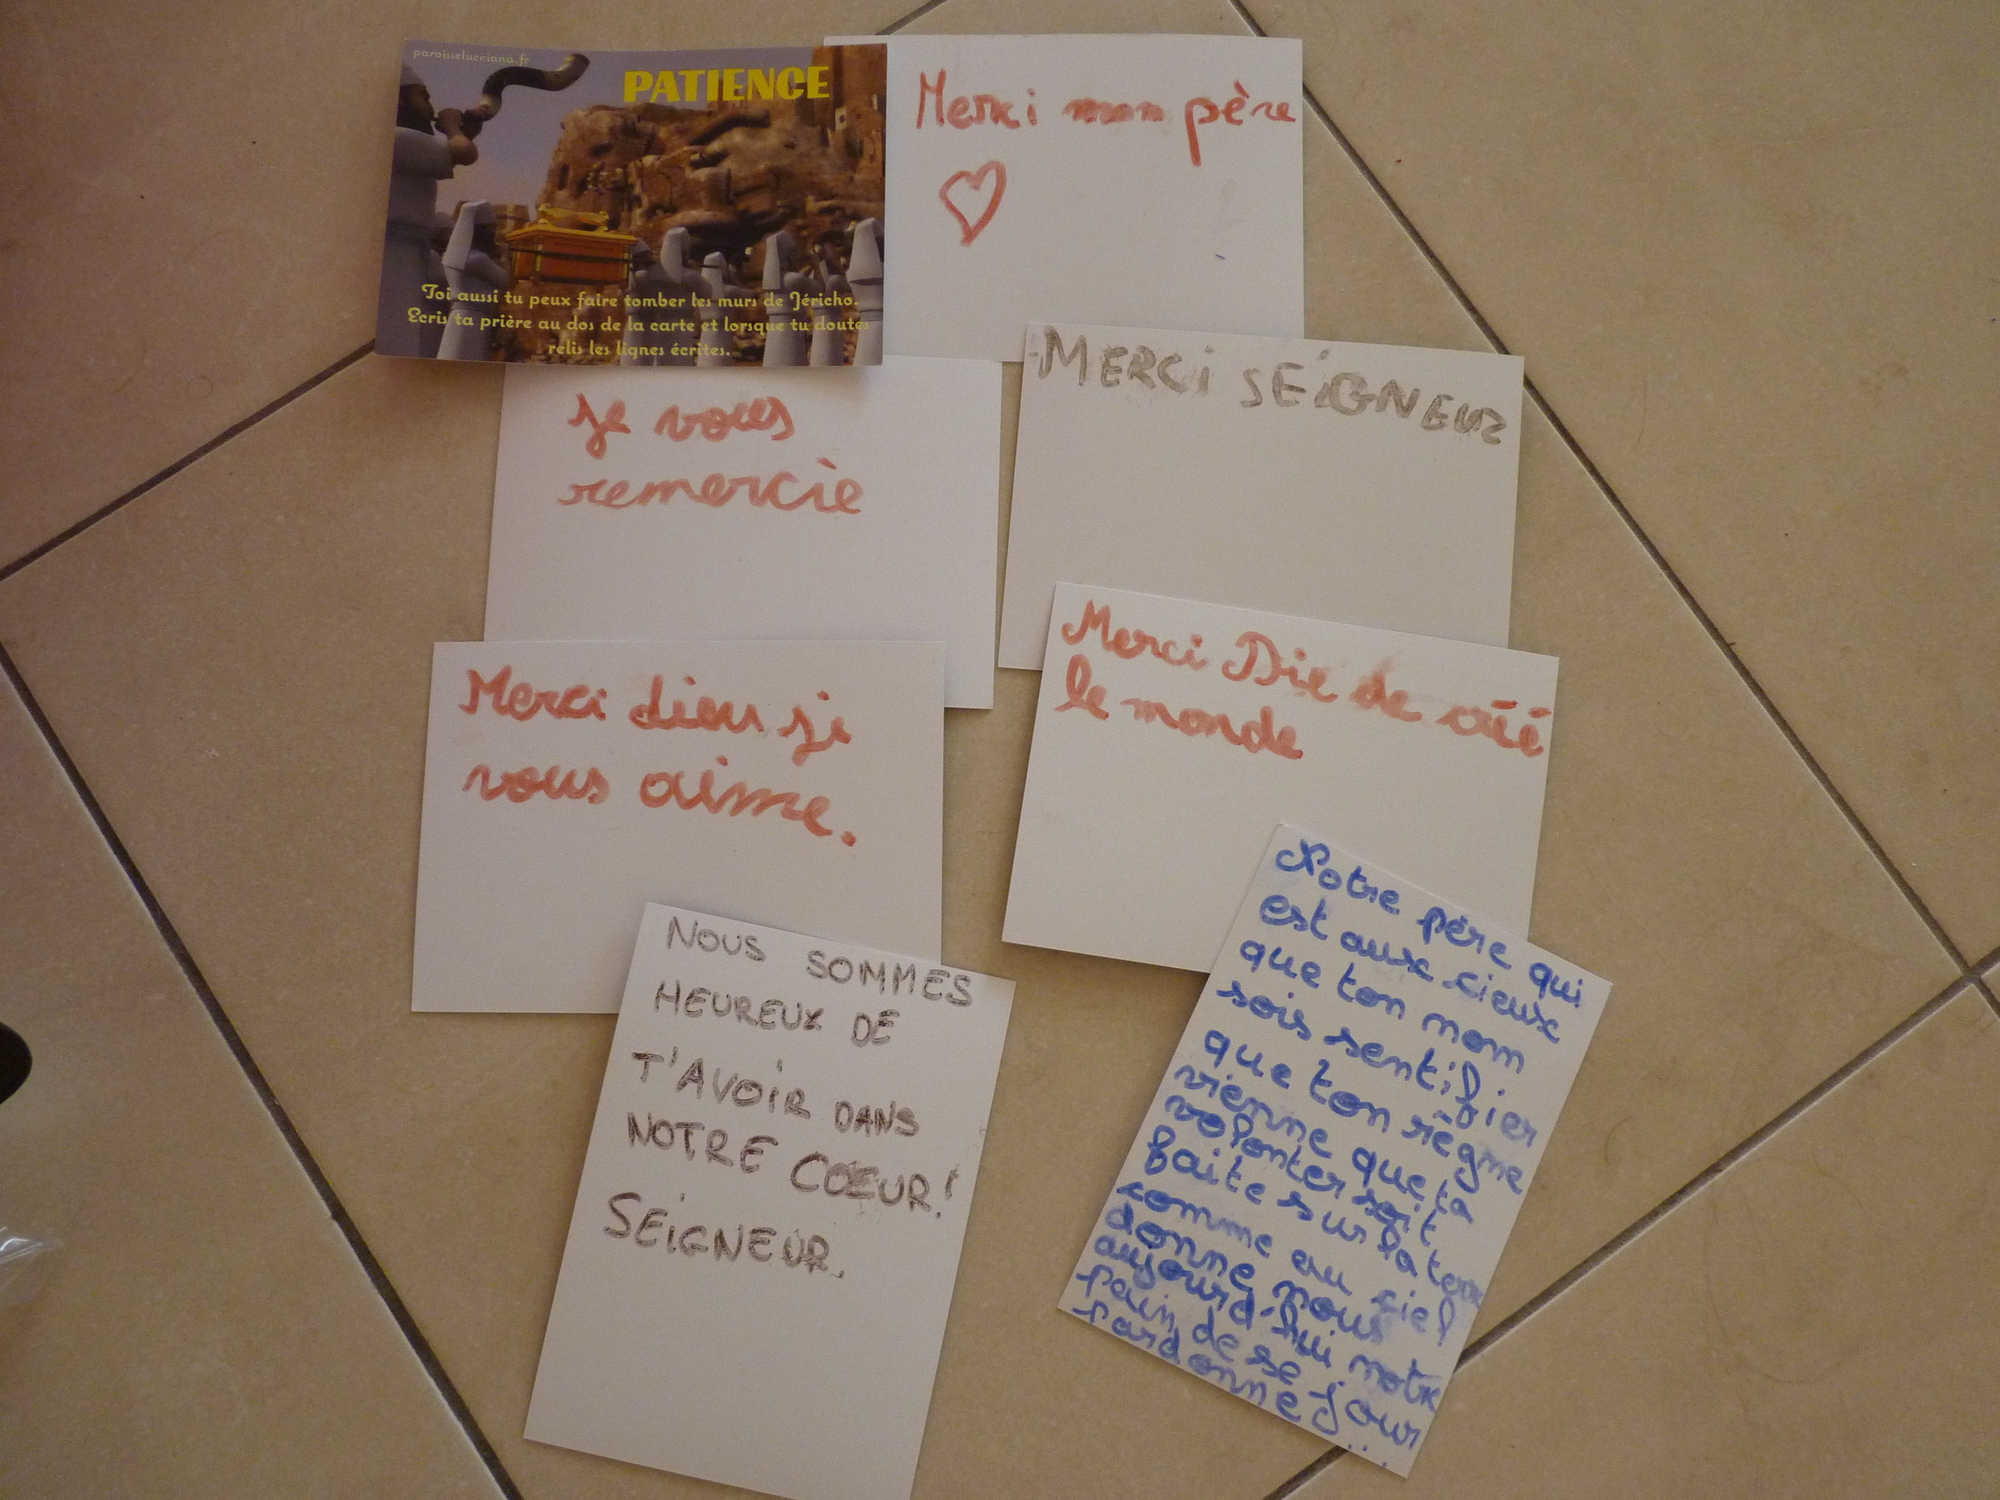 paroisselucciana.fr
PATIENCE
Toi aussi tu peux faire tomber les murs de Jéricho.
Ecris ta prière au dos de la carte et lorsque tu doutes
relis les lignes écrites.
Merci mon père
je vous
remercie
MERCi SEiGNEUR
Merci dieu je
vous aime.
Merci Die de créé
le monde
NOUS SOMMES
HEUREUX DE
T'AVOiR DANS
NOTRE COEUR!
SEiGNEUR.
Notre père qui
est aux cieux
que ton nom
sois sentifier
que ton règne
vienne que ta
volonter soit
faite sur la terre
comme au ciel
donne nous
aujourd'hui notre
pain de se jour
pardonne..